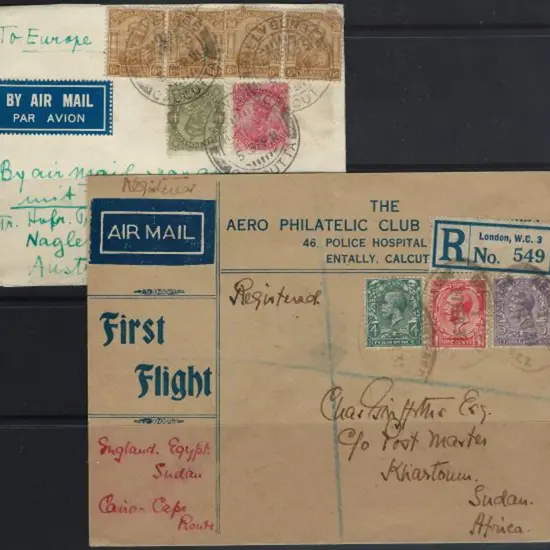 To Europe
BY AIR MAIL
PAR AVION
BALLYGUNGE
CALCUTTA
By air mail
Nagle
Aust
Registered
AIR MAIL
THE
AERO PHILATELIC CLUB
46, POLICE HOSPITAL
ENTALLY, CALCUT
R
London, W.C. 3
No. 549
Registered.
First
Flight
Esq.
C/o Post Master
Khartoum.
Sudan.
Africa.
England. Egypt.
Sudan
Cairo-Cape
Route